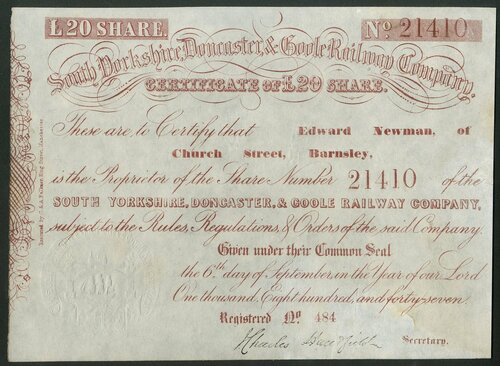 £20 SHARE.
No. 21410
South Yorkshire, Doncaster, & Goole Railway Company,
CERTIFICATE OF £20 SHARE.
These are, to Certify that Edward Newman, of
Church Street, Barnsley,
is the Proprietor of the Share Number 21410 of the
SOUTH YORKSHIRE, DONCASTER, & GOOLE RAILWAY COMPANY,
subject to the Rules, Regulations, & Orders of the said Company.
Given under their Common Seal
the 6th day of September, in the Year of our Lord
One thousand, Eight hundred, and forty-seven
Registered No 484
Charles
Secretary.